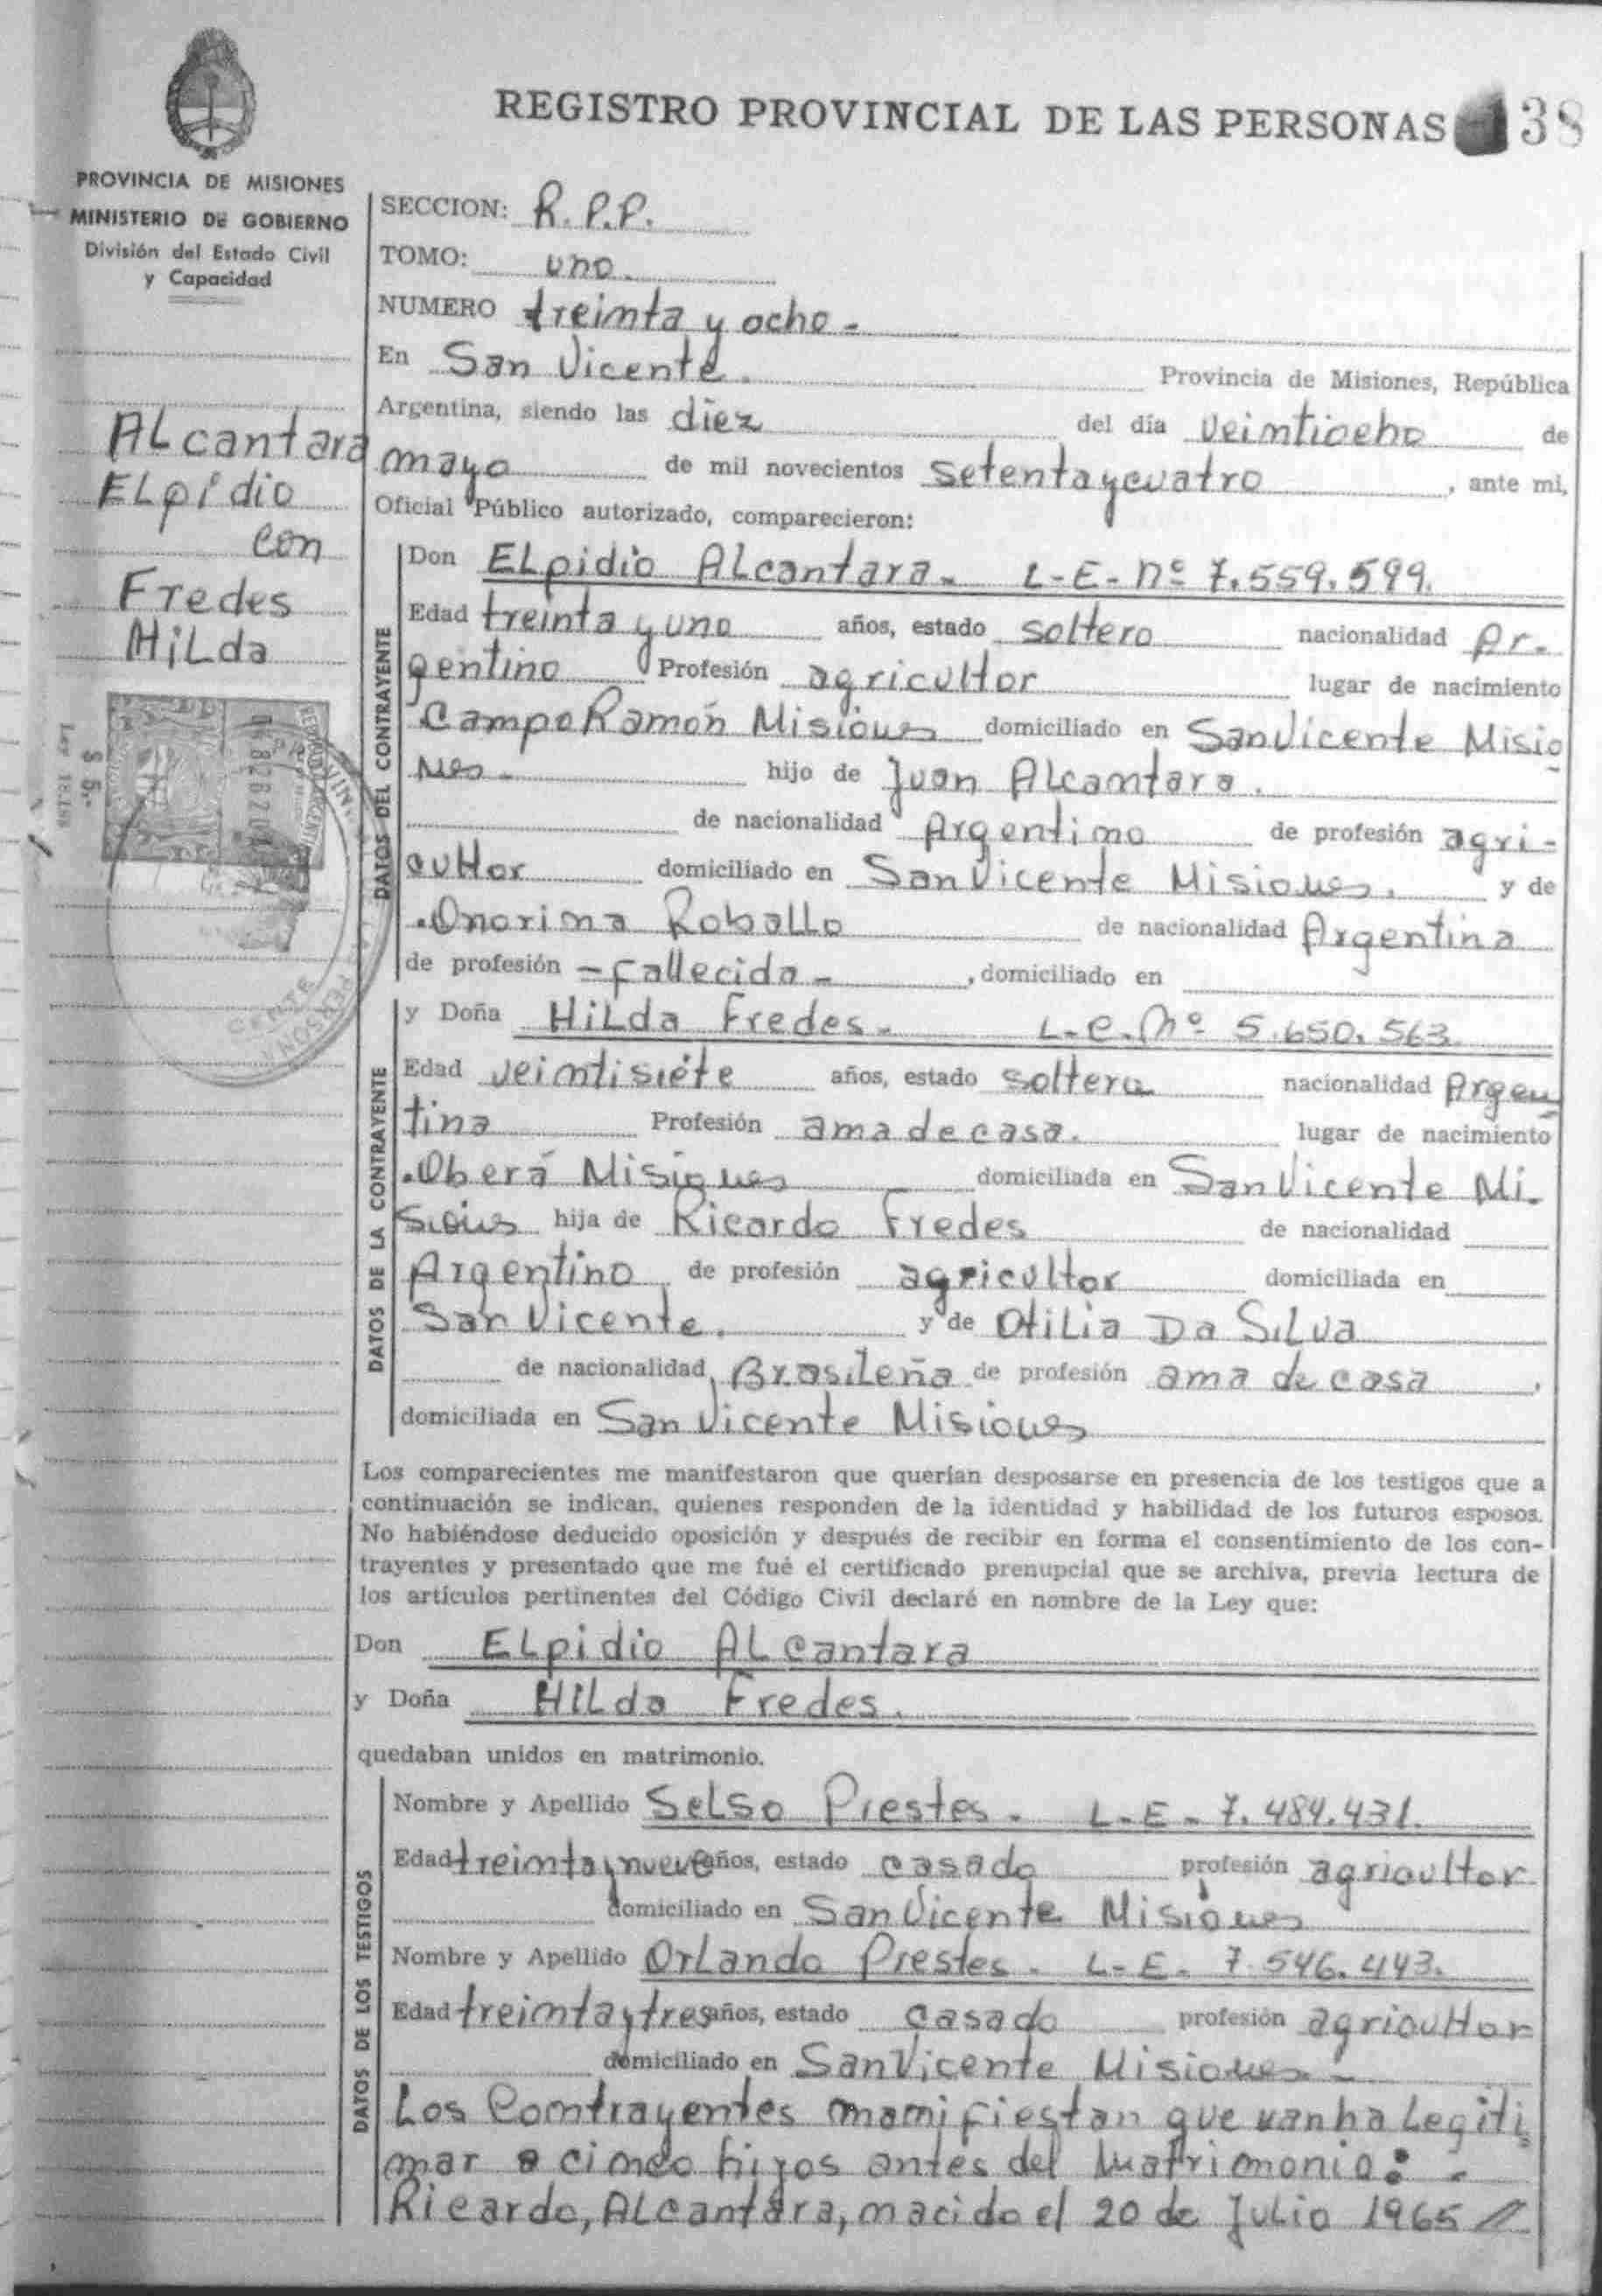 REGISTRO PROVINCIAL DE LAS PERSONAS 38
PROVINCIA DE MISIONES
MINISTERIO DE GOBIERNO
División del Estado Civil
y Capacidad
ALcantara
ELpidio
con
Fredes
HiLda
$ 5.-
Ley 18.188
SECCION: R. P.P.
TOMO: uno.
NUMERO treimta y ocho -
En San Vicente. Provincia de Misiones, República
Argentina, siendo las diez del día veimtiocho de
mayo de mil novecientos setenta y cuatro, ante mi,
Oficial Público autorizado, comparecieron:
DATOS DEL CONTRAYENTE
Don ELpidio ALcantara. L-E- nº 7.559.599.
Edad treinta y uno años, estado soltero nacionalidad Ar-
gentino Profesión agricultor lugar de nacimiento
Campo Ramón Misiones domiciliado en San Vicente Misio
nes- hijo de Juan ALcamtara.
de nacionalidad Argentimo de profesión agri-
cultor domiciliado en San Vicente Misiones. y de
.Onorima RobaLLo de nacionalidad Argentina
de profesión - fallecida - , domiciliado en
DATOS DE LA CONTRAYENTE
y Doña HiLda Fredes- L-C. Nº 5.650.563
Edad veimtisiete años, estado soltera nacionalidad Argen
tina Profesión ama de casa. lugar de nacimiento
.Oberá Misiones domiciliada en San Vicente Mi-
siones hija de Ricardo Fredes de nacionalidad
Argentino de profesión agricultor domiciliada en
San Vicente. y de OtiLia Da SiLva
de nacionalidad BrasiLeña de profesión ama de casa ,
domiciliada en San Vicente Misiones
Los comparecientes me manifestaron que querían desposarse en presencia de los testigos que a
continuación se indican, quienes responden de la identidad y habilidad de los futuros esposos.
No habiéndose deducido oposición y después de recibir en forma el consentimiento de los con-
trayentes y presentado que me fué el certificado prenupcial que se archiva, previa lectura de
los artículos pertinentes del Código Civil declaré en nombre de la Ley que:
Don ELpidio ALcantara
y Doña HiLda Fredes.
quedaban unidos en matrimonio.
DATOS DE LOS TESTIGOS
Nombre y Apellido SeLso Prestes. L-E- 7.484.431.
Edad treimta y nueve años, estado casado profesión agricultor
domiciliado en San Vicente Misiones
Nombre y Apellido OrLando Prestes. L-E- 7.546.443.
Edad treimta y tres años, estado casado profesión agricultor
domiciliado en San Vicente Misiones-
Los Comtrayentes mamifiestan que van ha Legiti
mar a cimco hijos antes del Matrimonio: -
Ricardo, ALcantara, nacido el 20 de JuLio 1965 //